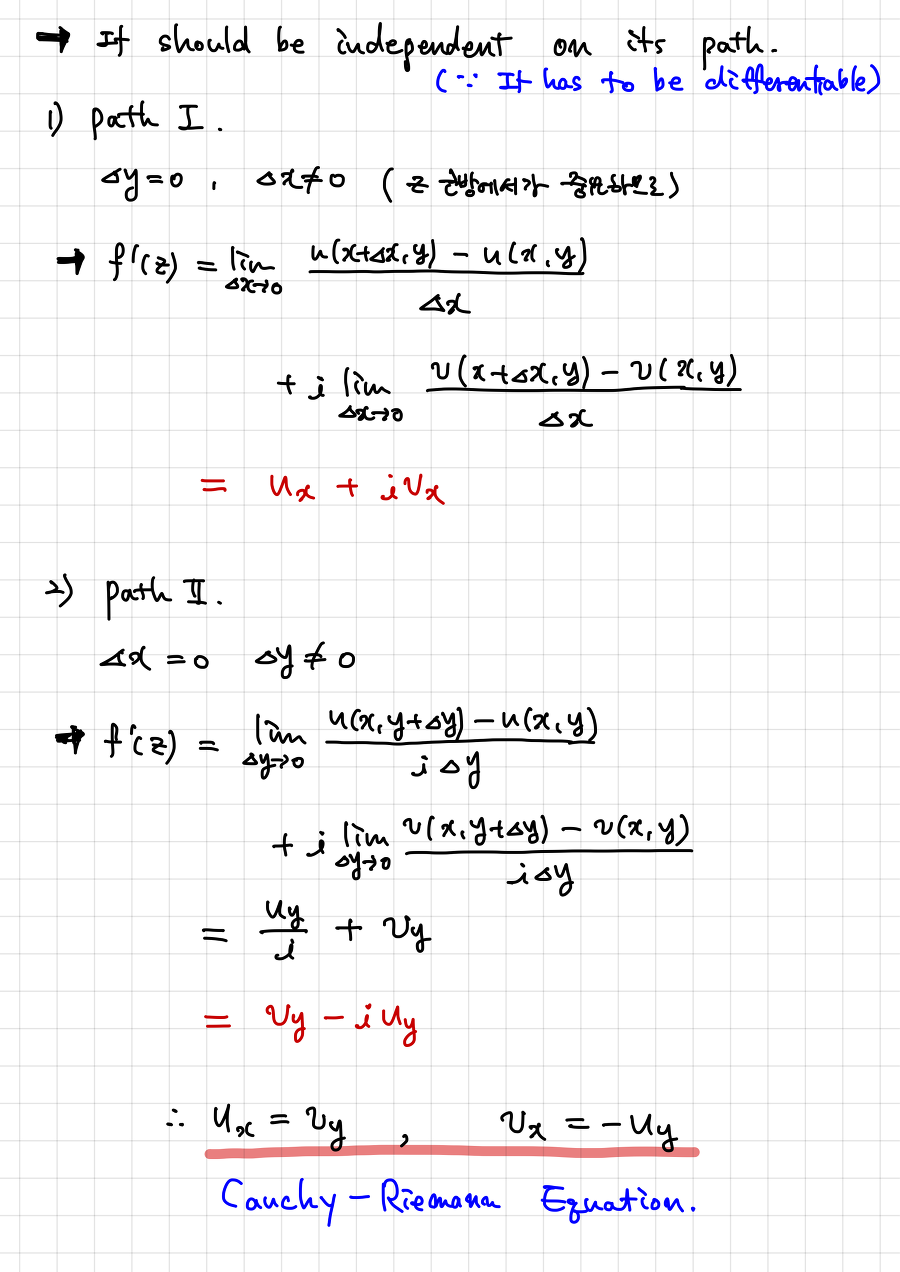 → It should be independent on its path.
(∵ It has to be differentiable)
1) path I.
Δy=0 , Δx≠0 (z 근방에서가 중요하므로)
→ f'(z) = lim_{Δx→0} \frac{u(x+Δx,y) - u(x,y)}{Δx}
+ i lim_{Δx→0} \frac{v(x+Δx,y) - v(x,y)}{Δx}
= u_x + i v_x
2) path II.
Δx = 0 Δy ≠ 0
→ f'(z) = lim_{Δy→0} \frac{u(x,y+Δy) - u(x,y)}{iΔy}
+ i lim_{Δy→0} \frac{v(x,y+Δy) - v(x,y)}{iΔy}
= \frac{u_y}{i} + v_y
= v_y - i u_y
∴ u_x = v_y , v_x = -u_y
Cauchy-Riemann Equation.